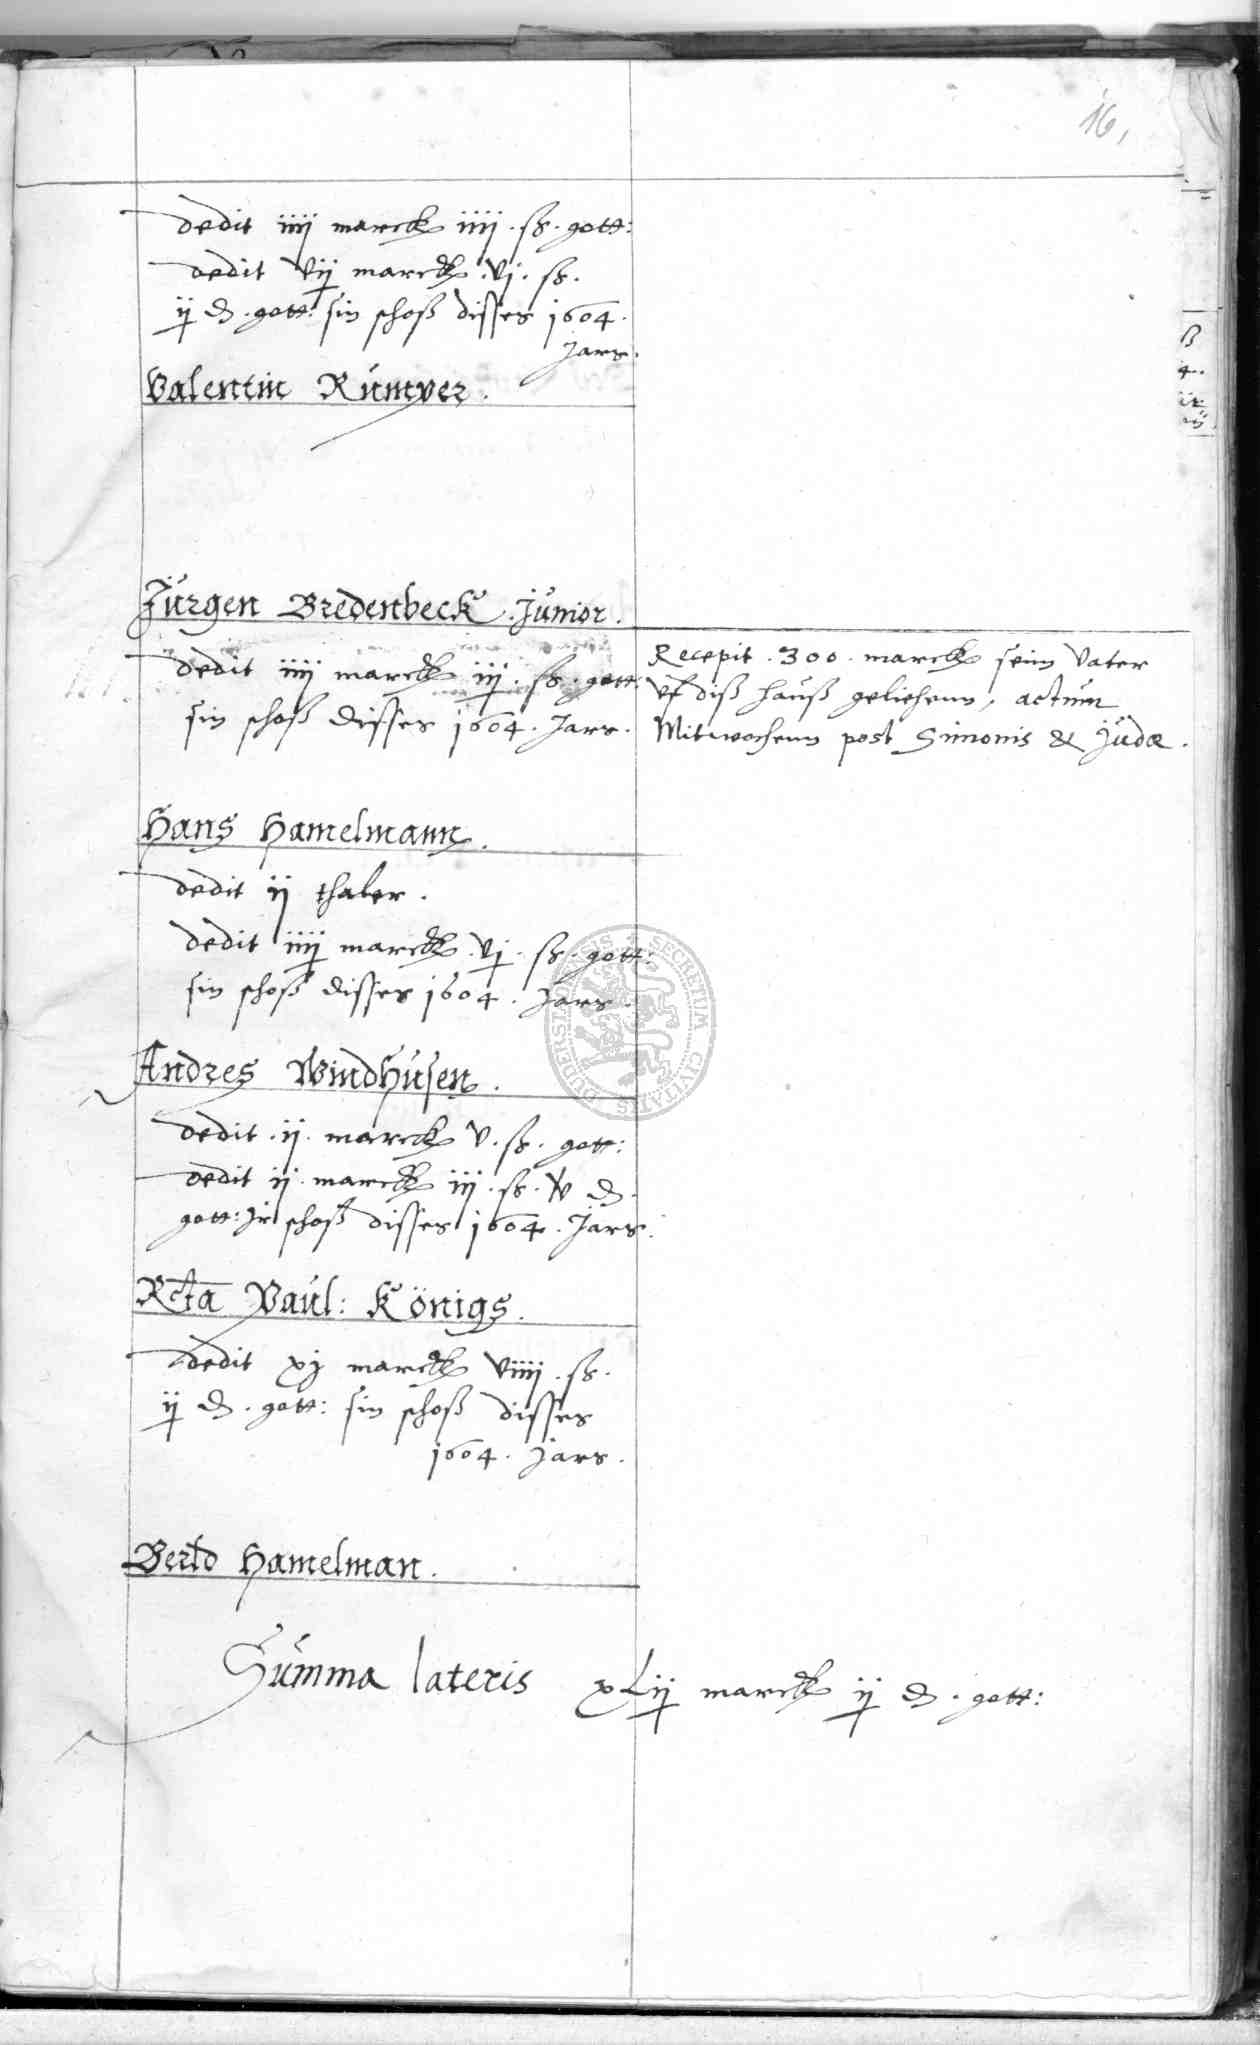 16,
dedit iiij marck iiij . ß . gott:
dedit vij marck . vj . ß .
ij d . gott: sin schoß disses 1604 .
Jars .
Valentin Rümver .
Jürgen Bredenbeck . Jünior .
dedit iiij marck iij . ß . gott:
sin schoß disses 1604 . Jars .
Recepit . 300 . marck sein Vater
vf diß hauß geliehenn, actum
Mitwochenn post Simonis & Judæ .
Hans Hamelmann .
dedit ij thaler .
dedit iiij marck . vj . ß . gott:
sin schoß disses 1604 . Jars .
Andres Windhüsen .
dedit . ij . marck v . ß . gott:
dedit ij . marck iij . ß . v d .
gott: Jr schoß disses 1604 . Jars .
Rcta Paül: Königs .
dedit xj marck viiij . ß .
ij d . gott: sin schoß disses
1604 . Jars .
Bertd Hamelman .
Summa lateris xLij marck ij d . gott:
SECRETUM CIVITATIS DUDERSTADENSIS